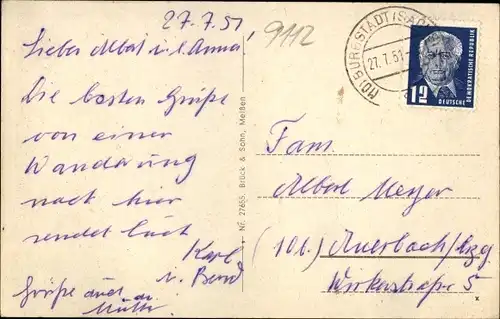 27.7.51
9112
Lieber Albert u. l. Anna!
Die besten Grüße
von einer
Wanderung
nach hier
sendet Euch
Karl
u. Bernd
Grüße auch die
Mutti.
Nr. 27655, Brück & Sohn, Meißen
(10) BURGSTÄDT (SACHS)
27.7.51
12
DEUTSCHE
DEMOKRATISCHE REPUBLIK
Fam.
Albert Meyer
(10b) Auerbach/Erzg.
x